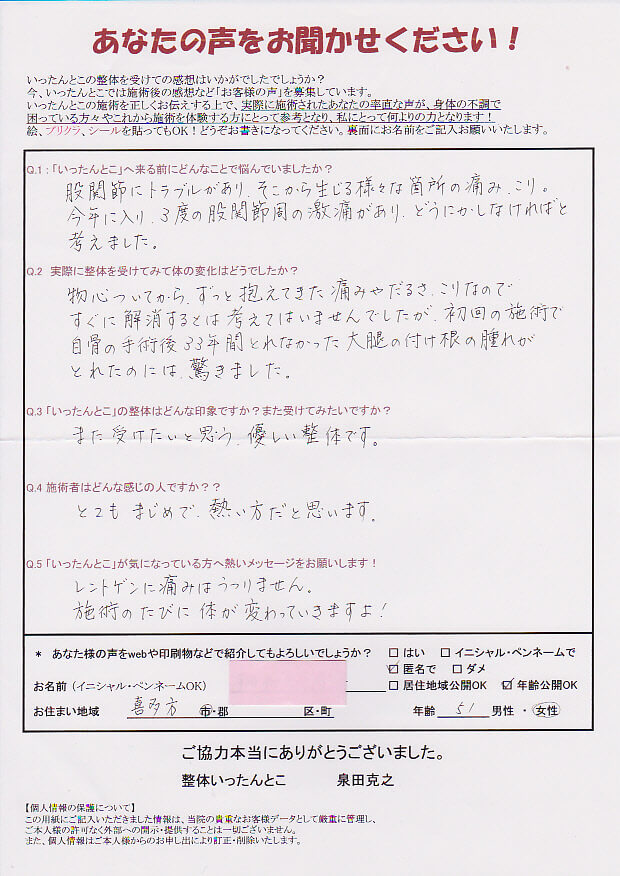 あなたの声をお聞かせください！
いったんとこの整体を受けての感想はいかがでしたでしょうか？
今、いったんとこでは施術後の感想など「お客様の声」を募集しています。
いったんとこの施術を正しくお伝えする上で、実際に施術されたあなたの率直な声が、身体の不調で
困っている方々やこれから施術を体験する方にとって参考となり、私にとって何よりの力となります！
絵、プリクラ、シールを貼ってもOK！どうぞお書きになってください。裏面にお名前をご記入お願いします。
Q.1：「いったんとこ」へ来る前にどんなことで悩んでいましたか？
股関節にトラブルがあり、そこから生じる様々な箇所の痛み、こり。
今年に入り、3度の股関節周の激痛があり、どうにかしなければと
考えました。
Q.2 実際に整体を受けてみて体の変化はどうでしたか？
物心ついてから、ずっと抱えてきた痛みやだるさ、こりなので
すぐに解消するとは考えてはいませんでしたが、初回の施術で
自骨の手術後33年間とれなかった大腿の付け根の腫れが
とれたのには、驚きました。
Q.3「いったんとこ」の整体はどんな印象ですか？また受けてみたいですか？
また受けたいと思う、優しい整体です。
Q.4 施術者はどんな感じの人ですか？？
とてもまじめで、熱い方だと思います。
Q.5「いったんとこ」が気になっている方へ熱いメッセージをお願いします！
レントゲンに痛みはうつりません。
施術のたびに体が変わっていきますよ！
* あなた様の声をwebや印刷物などで紹介してもよろしいでしょうか？ □ はい □ イニシャル・ペンネームで
☑ 匿名で □ ダメ
お名前（イニシャル・ペンネームOK） □ 居住地域公開OK ☑ 年齢公開OK
お住まい地域 喜多方 市・郡 区・町 年齢 51 男性 ・ 女性
ご協力本当にありがとうございました。
整体いったんとこ 泉田克之
【個人情報の保護について】
この用紙にご記入いただきました情報は、当院の貴重なお客様データとして厳重に管理し、
ご本人様の許可なく外部への開示・提供することは一切ございません。
また、個人情報はご本人様からのお申し出により訂正・削除いたします。